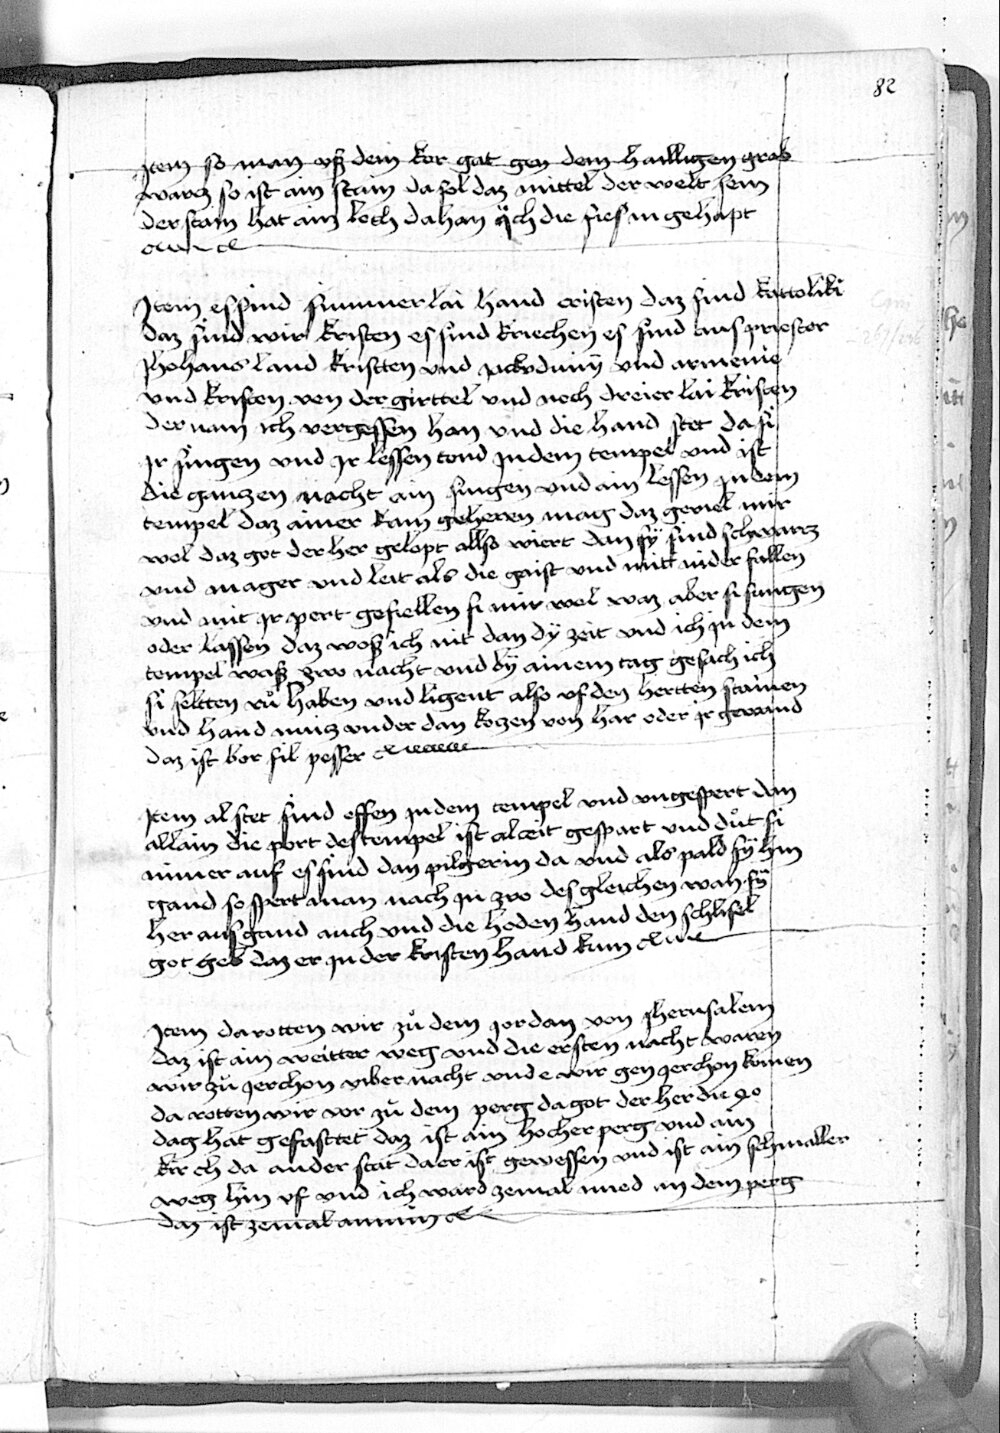 82
Item so man uß dem kor gat gen dem hailligen grab
warcz so ist ain stain da sol daz mittel der welt sein
der stain hat ain loch da han ich die fies in gehapt
Item es sind simmerlai hand cristen daz sind kattoliki
daz sind wir kristen es sind kriechen es sind aus priester
Jhohans land kristten und und armenie
und kristen von der girttel und noch dreier lai kristen
der nam ich vergessen han und die hand stet da si
ir singen und ir lessen tond in dem tempel und ist
die ganczen nacht ain singen und ain lessen in dem
tempel daz ainer kam gehern mag daz geviel mir
wol daz got der her gelopt allso wiert dan sÿ sind schwarcz
und mager und leit als die gaist und mitt nider fallen
und mit ir pert gefiellen si mir wol waz aber si sungen
oder lassen daz woß ich nit dan dÿ zeit und ich in dem
tempel waß zwo nacht und bÿ ainem tag gesach ich
si seltten rů haben und ligent also uf den hertten stainen
und hand nuiz under dan koczen von har oder ir gewand
daz ist bor fil pesser
Item al stet sind offen in dem tempel und ungespert dan
allain die port des tempel ist alczeit gespart und důt si
nimer auf es sind dan pilgerin da und als pald sÿ hin
gand so spert man nach in zwo des gleichen wan sÿ
her aus gand auch und die heden hand den schlisel
got geb daz er in der kristen hand kum
Item da rotten wir zů dem jordan von Jherusalem
daz ist ain weitter weg und die ersten nacht waren
wir zů jerchon uber nacht und e wir gen jerchon komen
da rotten wir vor zů dem perg da got der her die 40
dag hat gefasttet daz ist ain hocher perg und ain
kirch da an der stat da er ist gewessen und ist ain schmaller
weg hin uf und ich ward zemal mied an dem perg
dan ist zemal